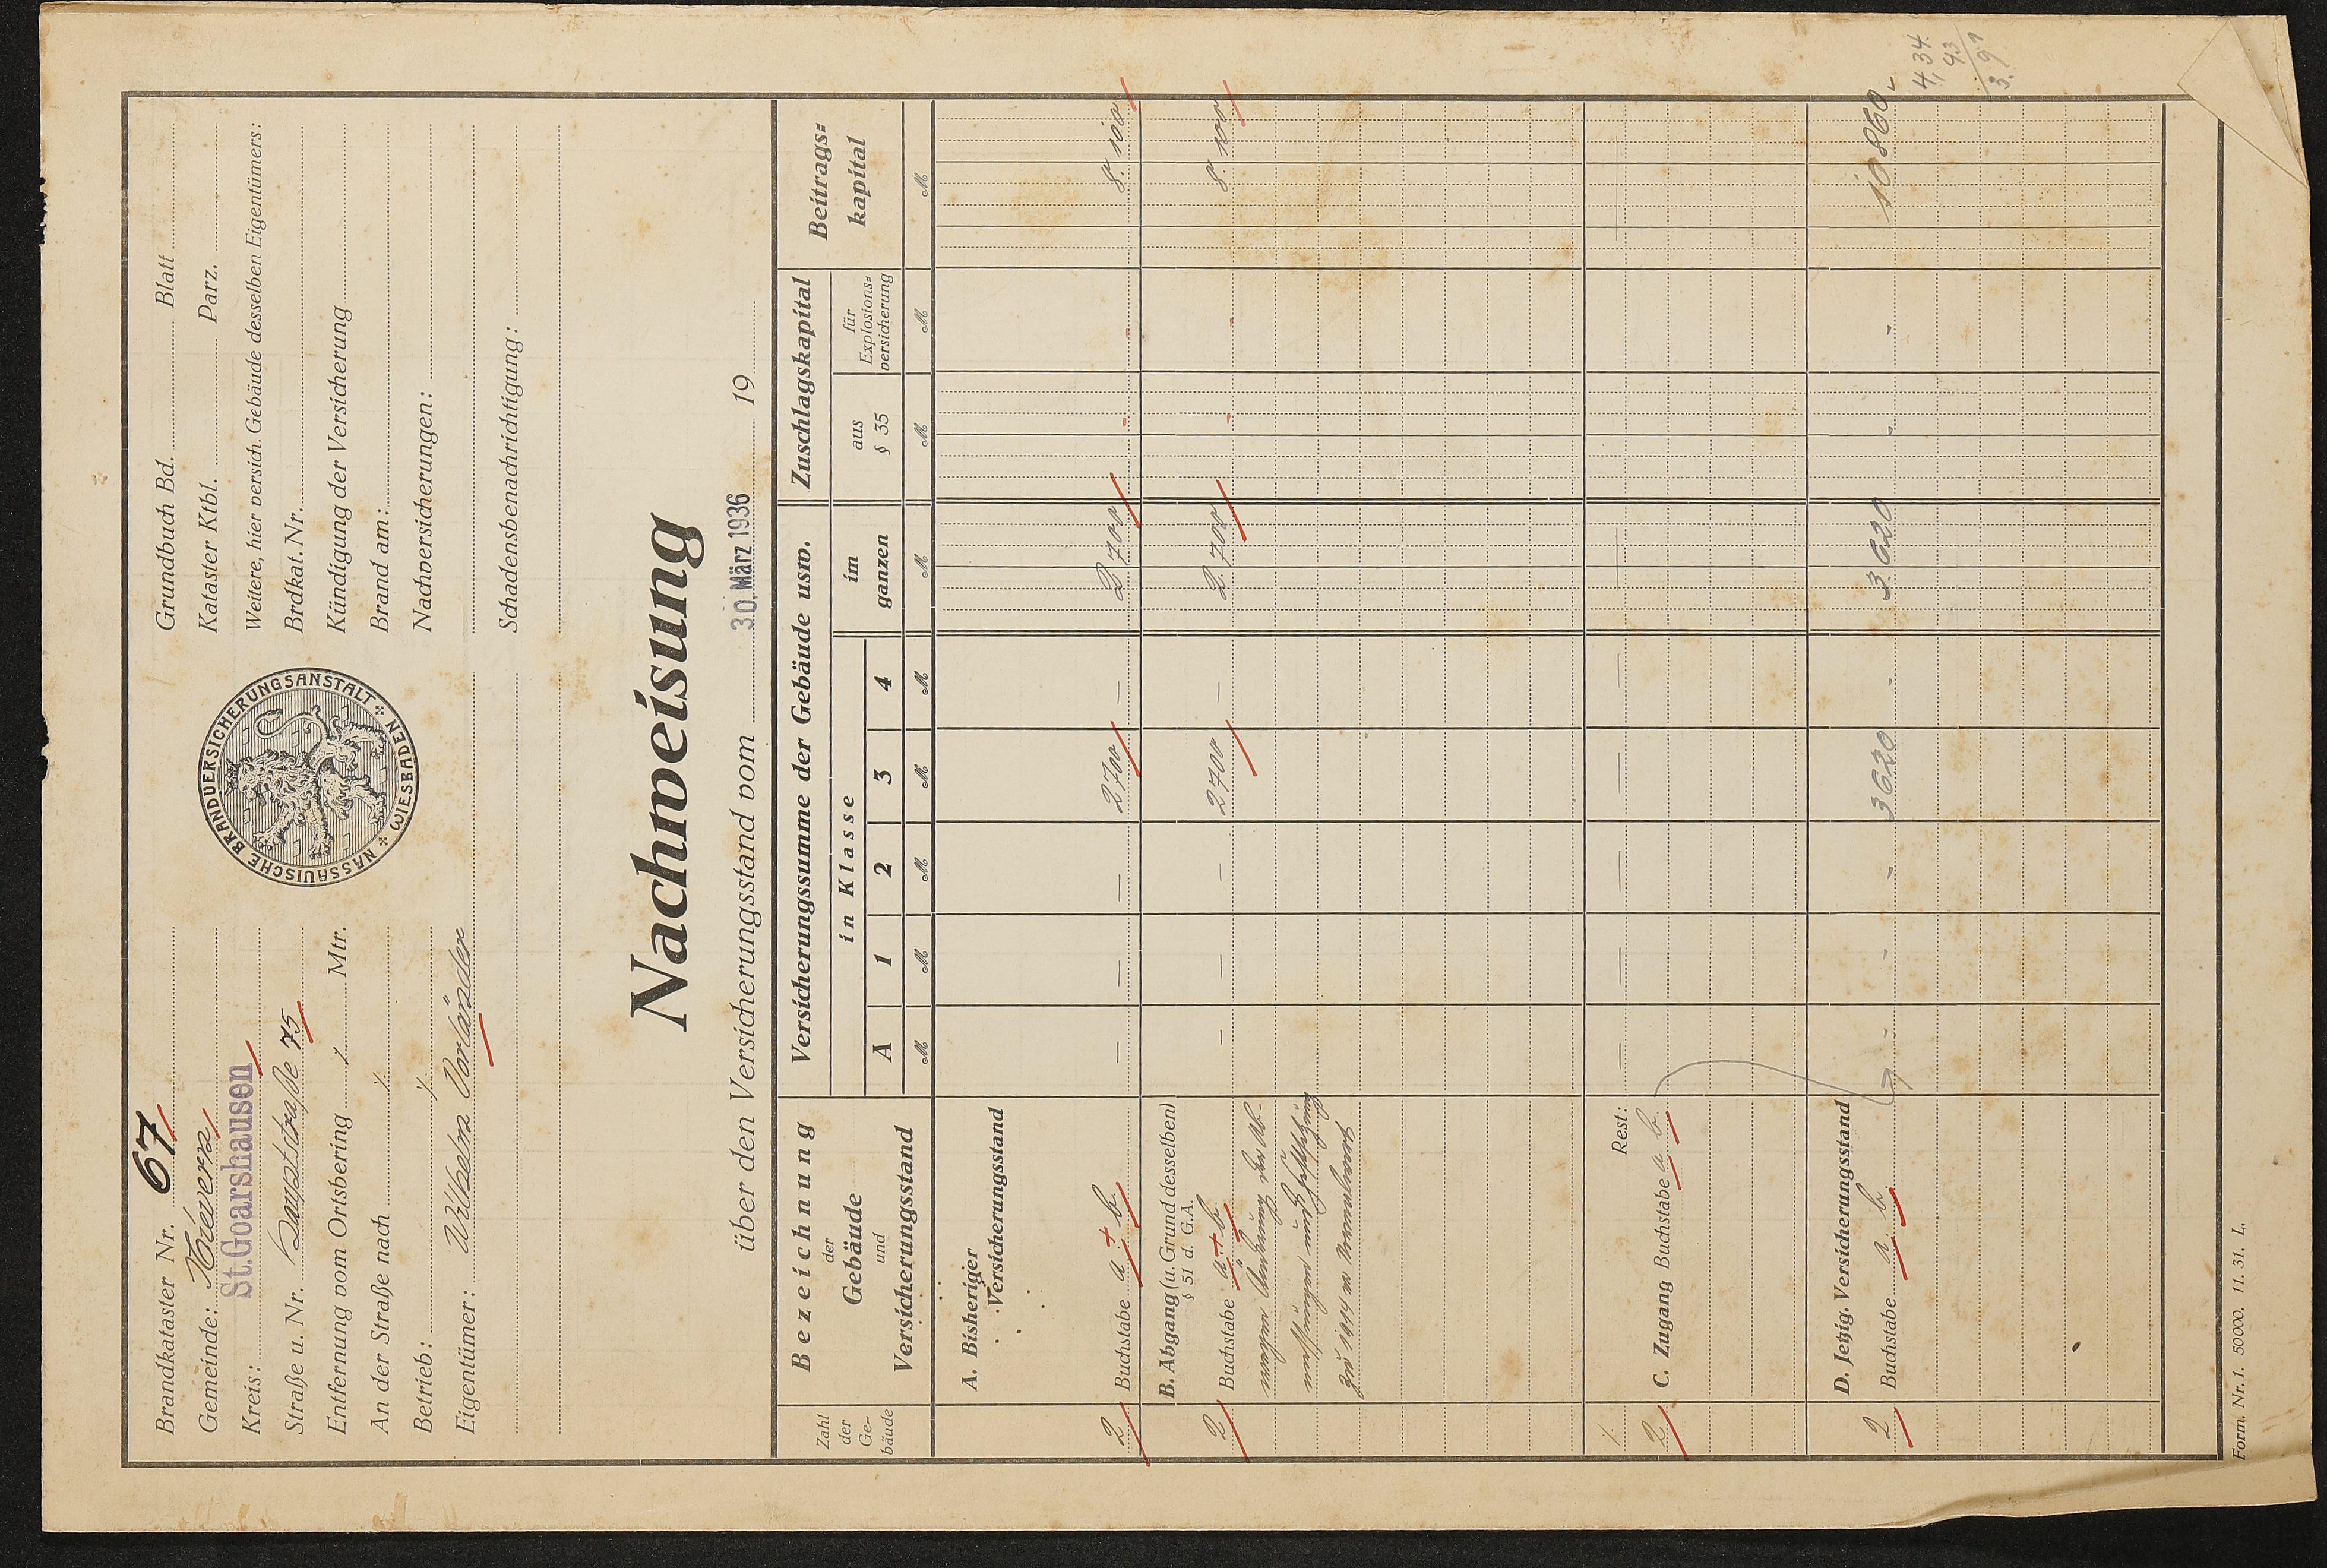 Brandkataster Nr. 67
Gemeinde: Kievern
Kreis: St. Goarshausen
Straße u. Nr. Hauptstraße 75
Entfernung vom Ortsbering ./. Mtr.
An der Straße nach ./.
Betrieb: ./.
Eigentümer: Wilhelm Vorländer
NASSAUISCHE BRANDVERSICHERUNGSANSTALT + WIESBADEN +
Grundbuch Bd. Blatt
Kataster Ktbl. Parz.
Weitere, hier versich. Gebäude desselben Eigentümers:
Brdkat. Nr.
Kündigung der Versicherung
Brand am:
Nachversicherungen:
Schadensbenachrichtigung:
Nachweisung
über den Versicherungsstand vom 30. März 1936 19
Zahl der Ge-bäude
Bezeichnung der Gebäude und Versicherungsstand
Versicherungssumme der Gebäude usw.
in Klasse
A 1 2 3 4
im ganzen
Zuschlagskapital
aus § 35
für Explosions=versicherung
Beitrags=kapital
M M M M M M M M M
A. Bisheriger Versicherungsstand
2 Buchstabe a + b — — — 2700 — 2 700 - - 8. 100
B. Abgang (u. Grund desselben)
§ 51 d. G.A.
2 Buchstabe a + b — — — 2700 — 2. 700 - - 8. 100
wegen Änderung der Ab-
messungen und
zu 1914 er
./. Rest: — — — — — —
2 C. Zugang Buchstabe a b
D. Jetzig. Versicherungsstand
2 Buchstabe a. b - - - 3620 - 3 620 - - 10 860.-
4,34
43
3.91
Form. Nr. 1. 50000. 11. 31. L.